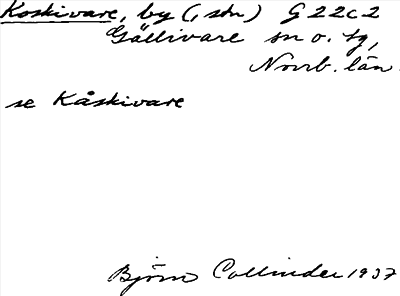 Koskivare, by (, stn) G 22 c 2
Gällivare sn o. tg,
Norrb. län.
se Kåskivare
Björn Collinder 1937